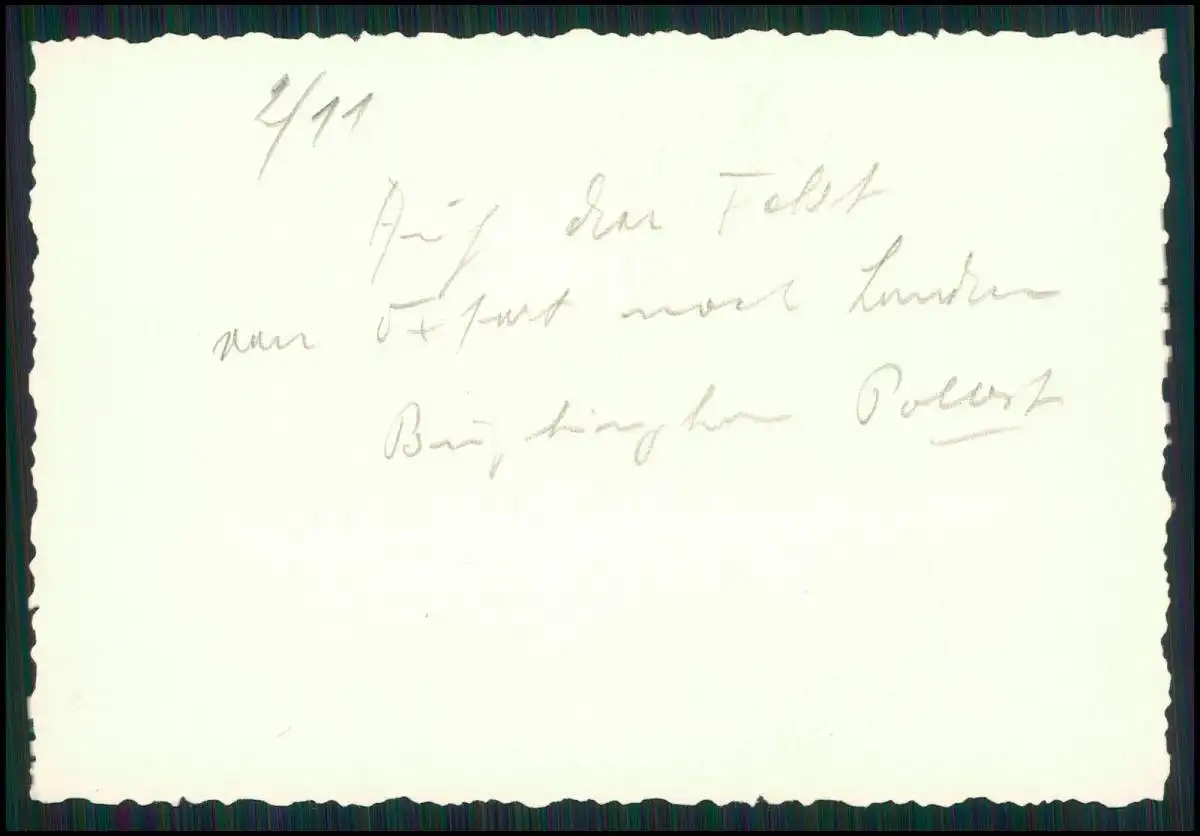 2/11
Auf der Fahrt
von Oxfort nach London
Buckingham Palast